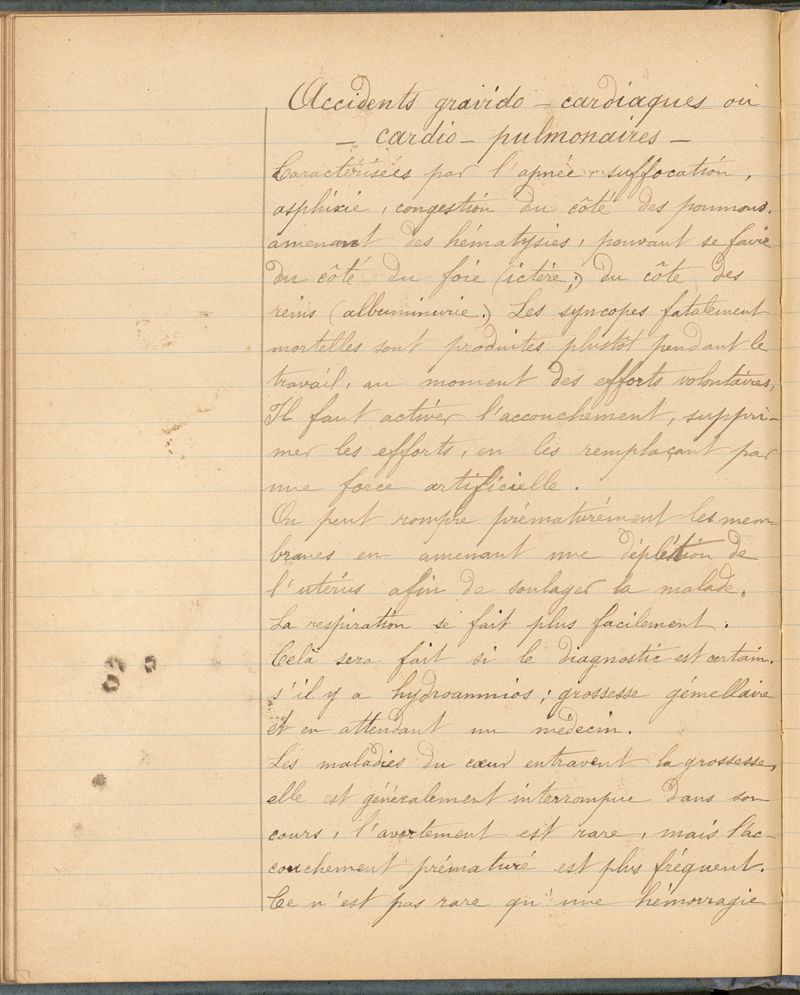 Accidents gravido - cardiaques ou
- cardio - pulmonaires -
Caractérisées par l'apnée, suffocation,
asphixie, congestion du côté des poumons,
amenant des hématysies, pouvant se faire
du côté du foie (ictère;) du côte des
reins (albuminurie.) Les syncopes fatalement
mortelles sont produites plustôt pendant le
travail, au moment des efforts volontaires,
Il faut activer l'accouchement, suppri-
mer les efforts, en les remplaçant par
une force artificielle.
On peut rompre prématurément les mem
branes en amenant une déplétion de
l'utérus afin de soulager la malade.
La respiration se fait plus facilement.
Celà sera fait si le diagnostic est certain.
s'il y a hydroamnios; grossesse gémellaire
et en attendant un médecin.
Les maladies du cœur entravent la grossesse,
elle est généralement interrompue dans son
cours, l'avortement est rare, mais l'ac-
couchement prématuré est plus fréquent.
Ce n'est pas rare qu'une hémorragie